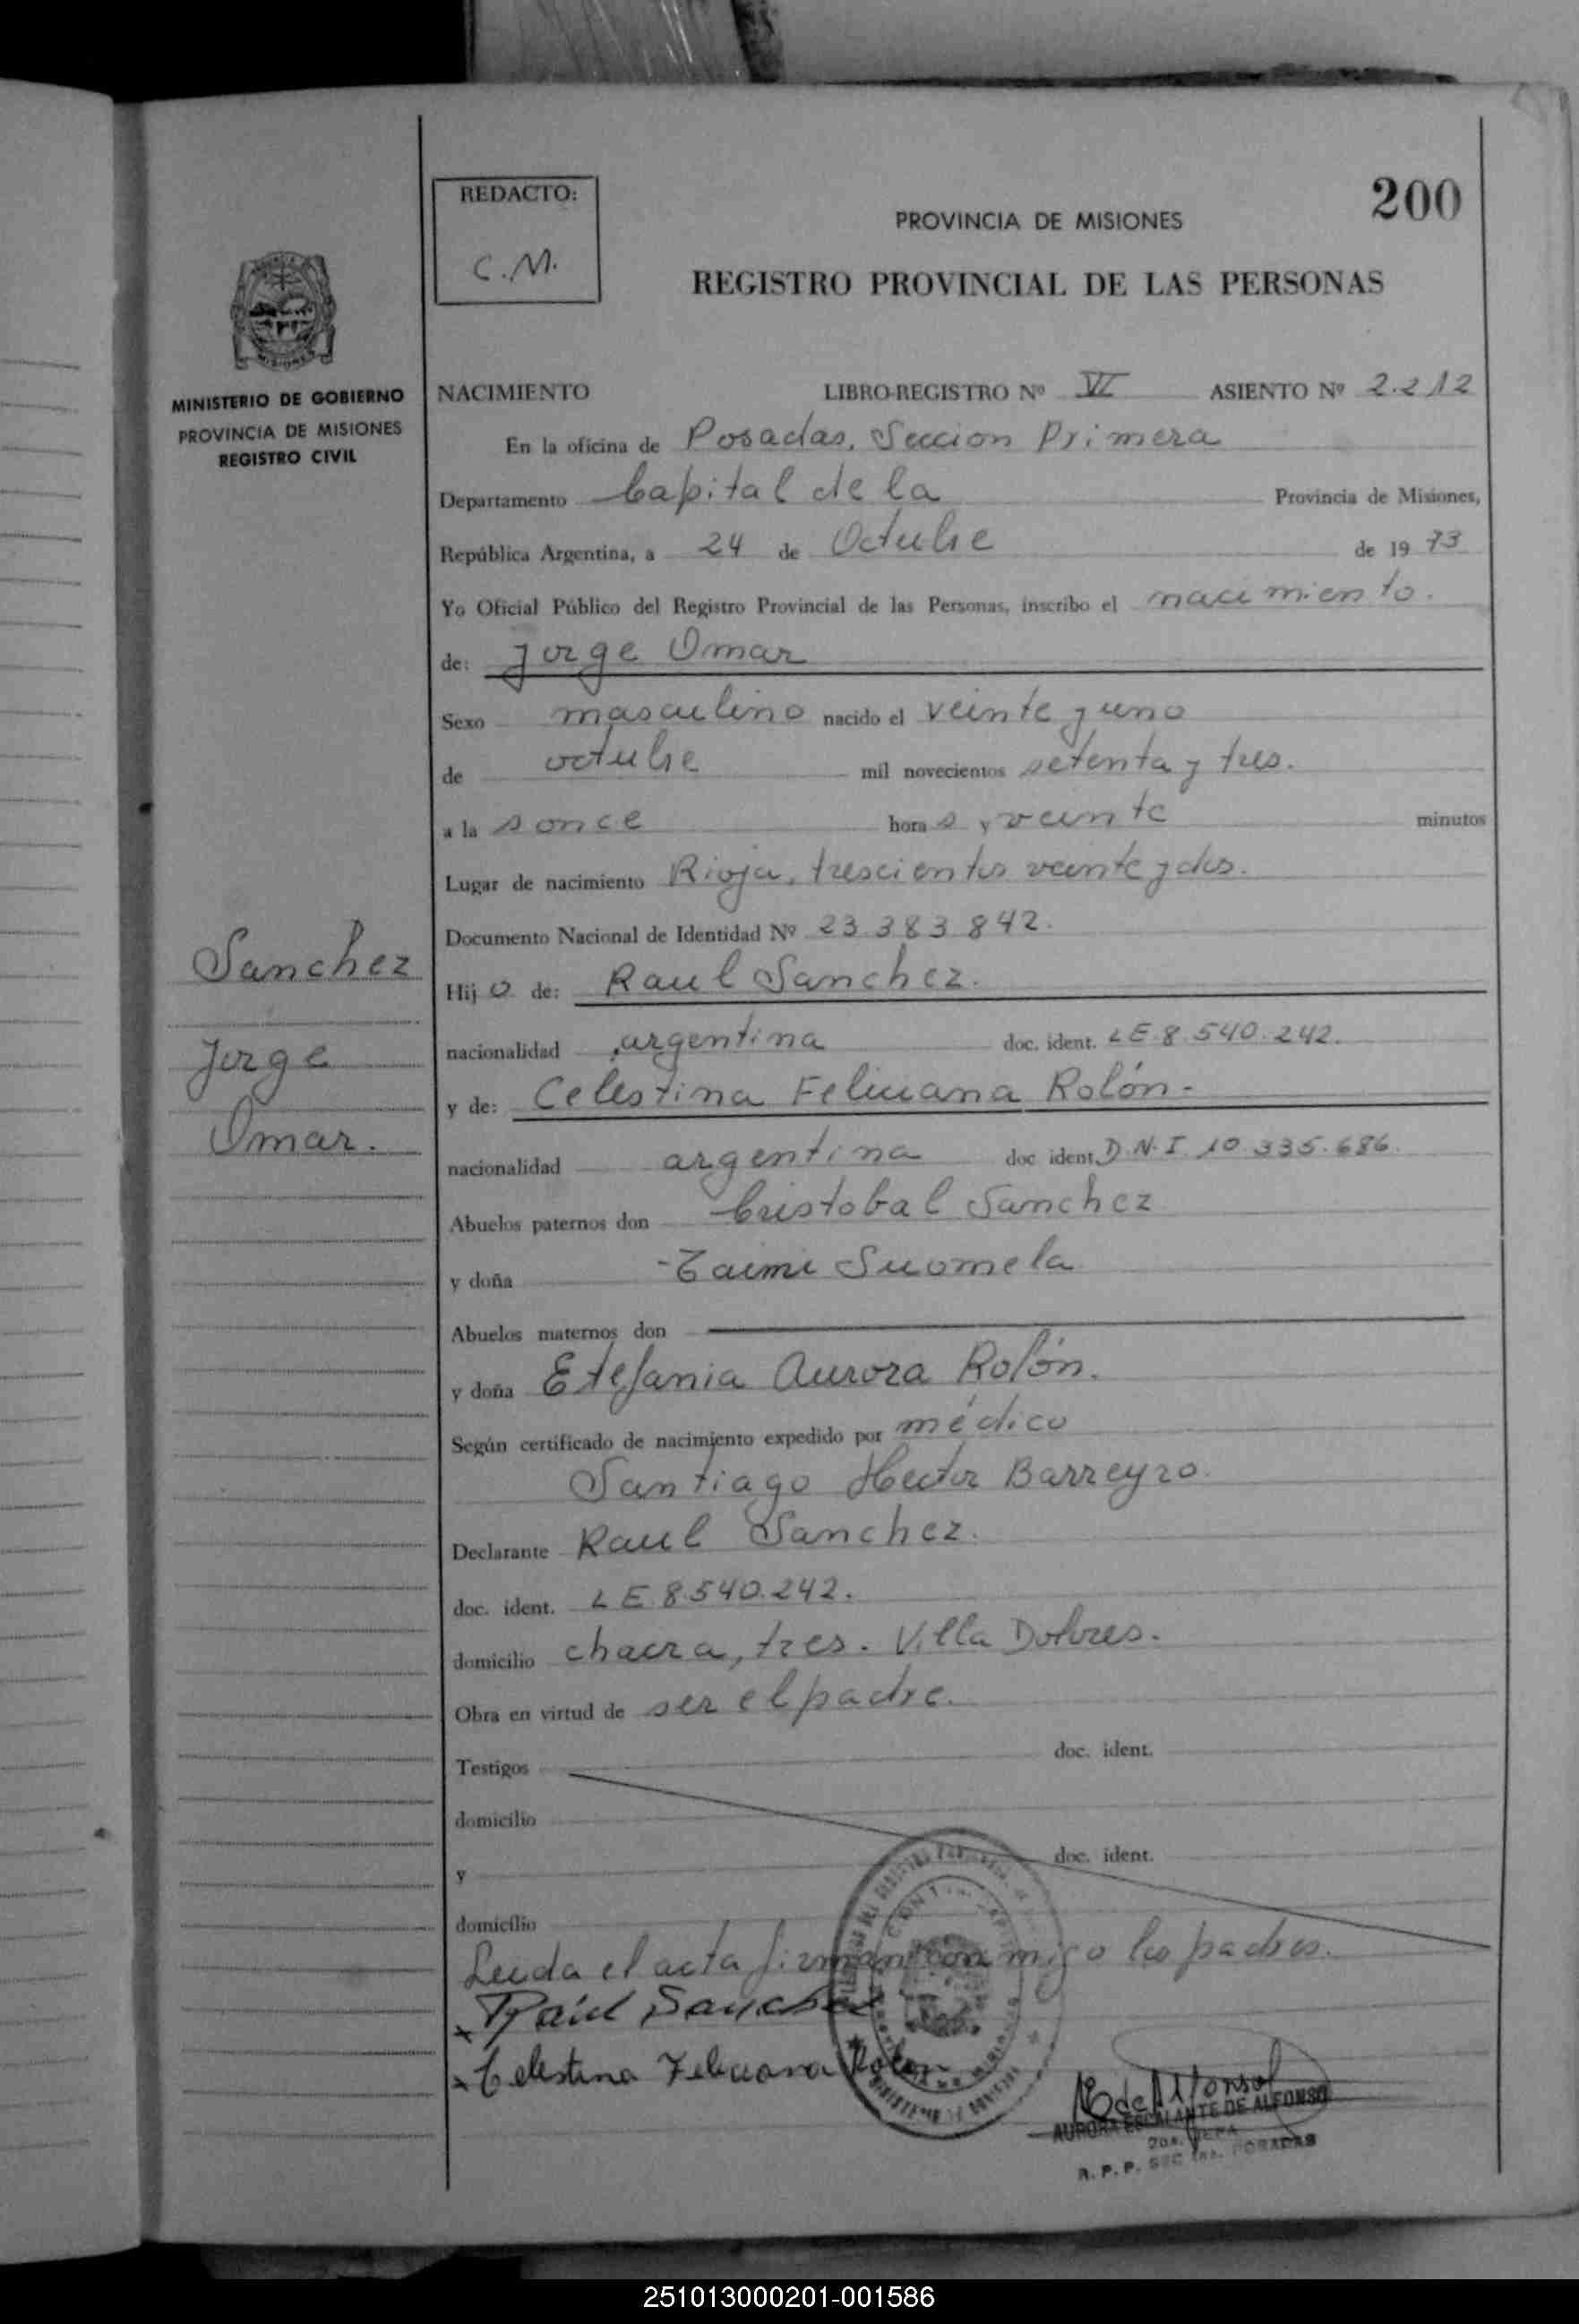 200
REDACTO:
C.M.
PROVINCIA DE MISIONES
REGISTRO PROVINCIAL DE LAS PERSONAS
MISIONES
MINISTERIO DE GOBIERNO
PROVINCIA DE MISIONES
REGISTRO CIVIL
NACIMIENTO LIBRO-REGISTRO Nº VI ASIENTO Nº 2.212
En la oficina de Posadas, Seccion Primera
Departamento Capital de la Provincia de Misiones,
República Argentina, a 24 de Octubre de 1973
Yo Oficial Público del Registro Provincial de las Personas, inscribo el nacimiento.
de: Jorge Omar
Sexo masculino nacido el veinte y uno
de octubre mil novecientos setenta y tres.
a la s once hora s y veinte minutos
Lugar de nacimiento Rioja, trescientos veinte y dos.
Documento Nacional de Identidad Nº 23.383.842.
Sanchez
Jorge
Omar.
Hijo de: Raul Sanchez.
nacionalidad argentina doc. ident. LE 8.540.242.
y de: Celestina Feliciana Rolón-
nacionalidad argentina doc ident. D.N.I. 10.335.686.
Abuelos paternos don Cristobal Sanchez
y doña Taimi Suomela
Abuelos maternos don
y doña Etefania Aurora Rolón.
Según certificado de nacimiento expedido por médico
Santiago Hector Barreyro.
Declarante Raul Sanchez.
doc. ident. LE 8.540.242.
domicilio chacra, tres. Villa Dolores.
Obra en virtud de ser el padre.
Testigos doc. ident.
domicilio
y doc. ident.
domicilio
Leida el acta firman conmigo los padres.
x Raúl Sanchez
x Celestina Feliciana Rolon
E de Alfonso
AURORA ESCALANTE DE ALFONSO
2da. JEFA
R. P. P. SEC 1ra. POSADAS
251013000201-001586